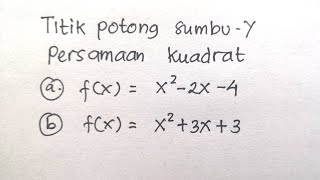 Titik potong sumbu-Y
Persamaan kuadrat
ⓐ. f(x) = x²-2x-4
ⓑ f(x) = x²+3x+3